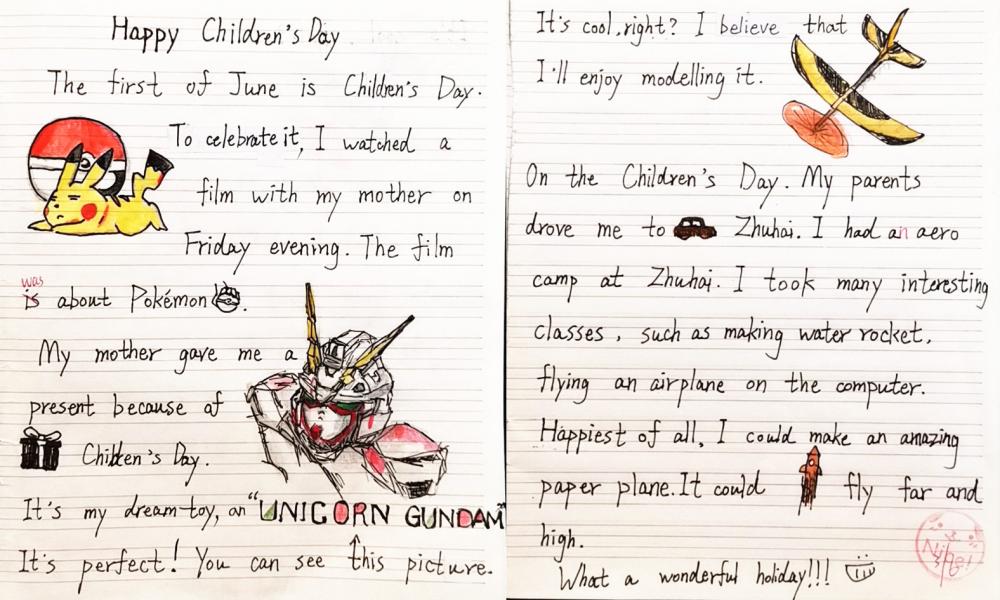 Happy Children's Day
The first of June is Children's Day.
To celebrate it, I watched a
film with my mother on
Friday evening. The film
was
is about Pokémon.
My mother gave me a
present because of
Children's Day.
It's my dream-toy, an "UNICORN GUNDAM"
It's perfect! You can see this picture.
It's cool, right? I believe that
I'll enjoy modelling it.
On the Children's Day. My parents
drove me to Zhuhai. I had an aero
camp at Zhuhai. I took many interesting
classes, such as making water rocket,
flying an airplane on the computer.
Happiest of all, I could make an amazing
paper plane. It could fly far and
high.
What a wonderful holiday!!!